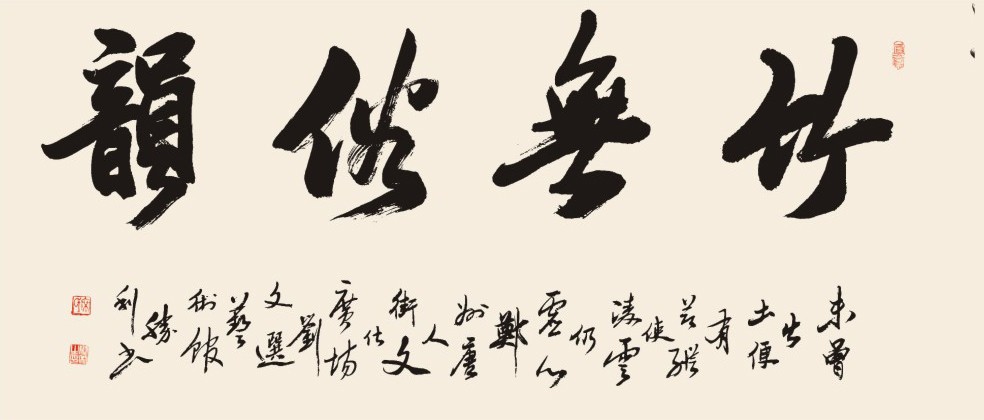 竹無俗韻
未曾出土便有節縱使凌雲仍虛心鄭州唐人街文化廣場劉文選藝術館勝利书